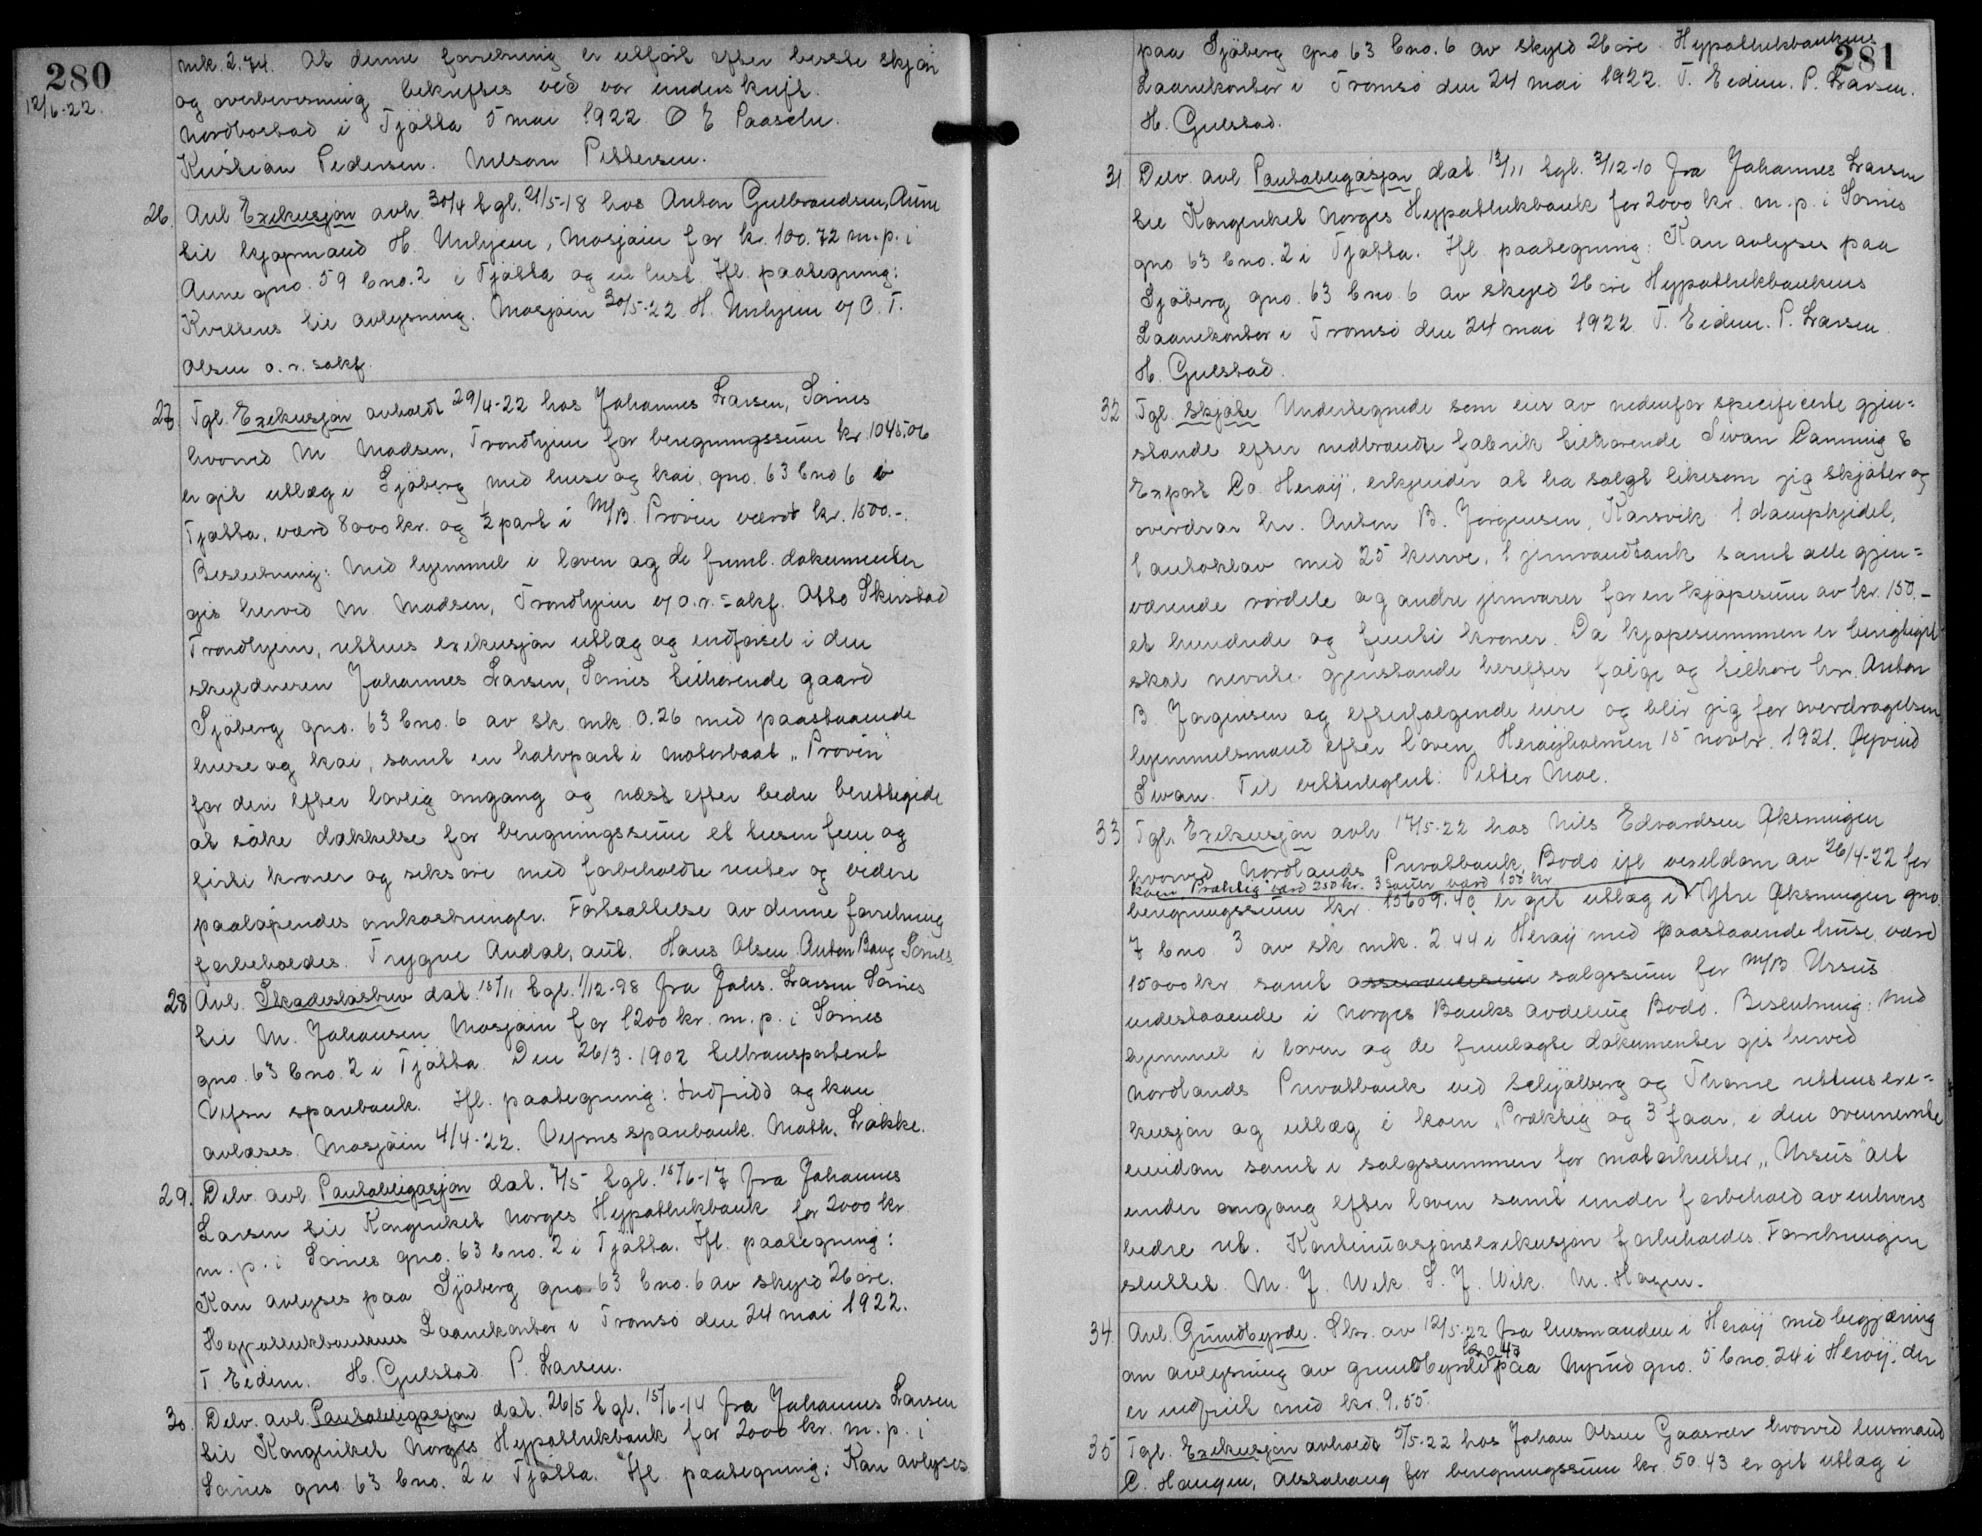 280
12/6-22.
mk. 2.74. At denne forretning er utført efter bedste skjøn
og overbevisning bekræftes ved vor underskrift.
Nordborbad i Tjøtta 5 mai 1922. O E Paasche.
Kristian Pedersen. Nilson Pettersen.
26. Avl. Exekusjon avh. 30/4 tgl. 21/5-18 hos Anton Gulbrandsen, Aune
til kjøpmand H. Unhjem, Mosjøin for kr. 100.72 m. p. i
Aune gno. 59 bno. 2 i Tjøtta og en hest. Ifl. paategning:
Kvitteres til avlysning. Mosjøin 30/5-22 H. Unhjem v/ O. T.
Olsen o. r. sakf.
27. Tgl. Exekusjon avholdt 29/4-22 hos Johannes Larsen, Sørnes
hvorved M. Madsen, Trondhjem for beregningssum kr 1045.06
er git utlæg i Sjøberg med huse og kai, gno. 63 bno 6 i
Tjøtta, værd 8000 kr. og ½ part i M/B. Prøven værdt kr. 1500.-.
Beslutning: Med hjemmel i loven og de freml. dokumenter
gis herved M. Madsen, Trondhjem v/ o. r. sakf. Otto Skirstad
Trondhjem, rettens exekusjon utlæg og indførsel i den
skyldneren Johannes Larsen, Sørnes tilhørende gaard
Sjøberg gno. 63 bno. 6 av sk. mk. 0.26 med paastaaende
huse og kai, samt en halvpart i motorbaat „Prøven"
for deri efter lovlig omgang og næst efter bedre berettigede
at søke dækkelse for beregningssum et tusen fem og
firti kroner og seks øre med forbeholdte renter og videre
paaløpendes omkostninger. Fortsættelse av denne forretning
forbeholdes. Trygve Andal, aut. Hans Olsen. Anton Baug Sørnes
28. Avl. Skadesløsbrev dat. 15/11 tgl. 1/12-98 fra Johs. Larsen Sørnes
til M. Johansen Mosjøin for 1200 kr. m. p. i Sørnes
gno. 63 bno. 2 i Tjøtta. Den 26/3-1902 tiltransporteret
Vefsn sparebank. Ifl. paategning: Indfridd og kan
avlæses. Mosjøin 4/4-22. Vefsns sparebank. Math. Løkke.
29. Delv. avl. Pantobligasjon dat. 7/5 tgl. 15/6-17 fra Johannes
Larsen til Kongeriket Norges Hypothekbank for 2000 kr.
m. p. i Sørnes gno. 63 bno. 2 i Tjøtta. Ifl. paategning:
Kan avlyses paa Sjøberg gno 63 bno. 6 av skyld 26 øre.
Hypothekbankens Laanekontor i Tromsø den 24 mai 1922.
T. Eidem. H. Gulstad P. Larsen.
30. Delv. avl. Pantobligasjon dat. 26/5 tgl. 15/6-14 fra Johannes Larsen
til Kongeriket Norges Hypothekbank for 2000 kr. m. p. i
Sørnes gno. 63 bno. 2 i Tjøtta. Ifl. paategning: Kan avlyses
281
paa Sjøberg gno 63 bno. 6 av skyld 26 øre. Hypothekbankens
Laanekontor i Tromsø den 24 mai 1922. T. Eidem. P. Larsen.
H. Gulstad.
31 Delv. avl. Pantobligasjon dat. 13/11 tgl. 3/12-10 fra Johannes Larsen
til Kongeriket Norges Hypothekbank for 2000 kr. m. p. i Sørnes
gno 63 bno. 2 i Tjøtta. Ifl. paategning: Kan avlyses paa
Sjøberg gno. 63 bno. 6 av skyld 26 øre Hypothekbankens
Laanekontor i Tromsø den 24 mai 1922 T. Eidem. P. Larsen
H. Gulstad.
32 Tgl. Skjøte. Undertegnede som eier av nedenfor specificerte gjen=
stande efter nedbrændte fabrik tilhørende Swan Canning &
Export Co. Herøy, erkjender at ha solgt likesom jeg skjøter og
overdrar hr. Anton B. Jørgensen, Karsvik 1 dampkjedel,
1 autoklav med 25 kurve, 1 jernvandtank samt alle gjen=
værende rørdele og andre jernvarer for en kjøpesum av kr. 150.-
et hundrede og femti kroner. Da kjøpesummen er berigtiget
skal nevnte gjenstande herefter følge og tilhøre hr. Anton
B. Jørgensen og efterfølgende eiere og blir jeg for overdragelsen
hjemmelsmand efter loven. Herøyholmen 15 novbr. 1921. Øyvind
Swan. Til vitterlighet: Petter Moe.
33 Tgl. Exekusjon avh. 17/5-22 hos Nils Edvardsen Øksningen
hvorved Nordlands Privatbank, Bodø ifl veseldom av 26/4-22 for
koen „Prektig" værd 250 kr. 3 sauer værd 100 kr
beregningssum kr. 15609.40 er git utlæg i Ytre Øksningen gno.
7 bno. 3 av sk. mk. 2.44 i Herøy med paastaaende huse, værd
15000 kr. samt assurancesum salgssum for M/B Ursus
indestaaende i Norges Banks avdeling Bodø. Beslutning: Med
hjemmel i loven og de fremlagte dokumenter gis herved
Nordlands Privatbank ved Schjølberg og Thorne rettens exe=
kusjon og utlæg i koen „Prektig" og 3 faar, i den ovennevnte
eiendom samt i salgssummen for motorkutter „Ursus" alt
under omgang efter loven samt under forbehold av enhvers
bedre ret. Kontinuasjonsexekusjon forbeholdes. Forretningen
sluttet. M. J. Wik. S. J. Wik. M. Hagen.
34. Avl. Grundbyrde. Skr. av 12/5-22 fra lensmanden i Herøy med begjæring
kr 0.47
om avlysning av grundbyrde paa Nyrud gno. 5 bno. 24 i Herøy, der
er indfriet med kr. 9.55.
35 Tgl. Exekusjon avholdt 5/5-22 hos Johan Olsen Gaasvær hvorved lensmand
C. Haugen, Alstahaug for beregningssum kr. 50.43 er git utlæg i